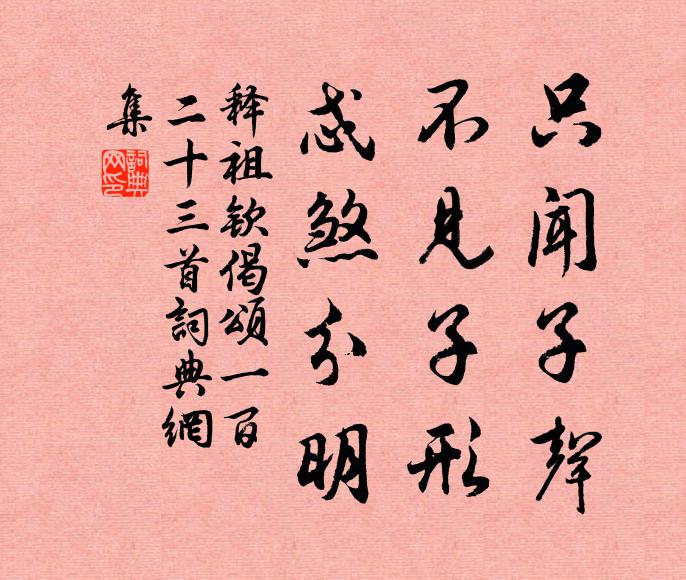 只闻子聲
不見子形
忒煞分明
释祖钦偈頌一百
二十三首詞典網
集
詞典
网印